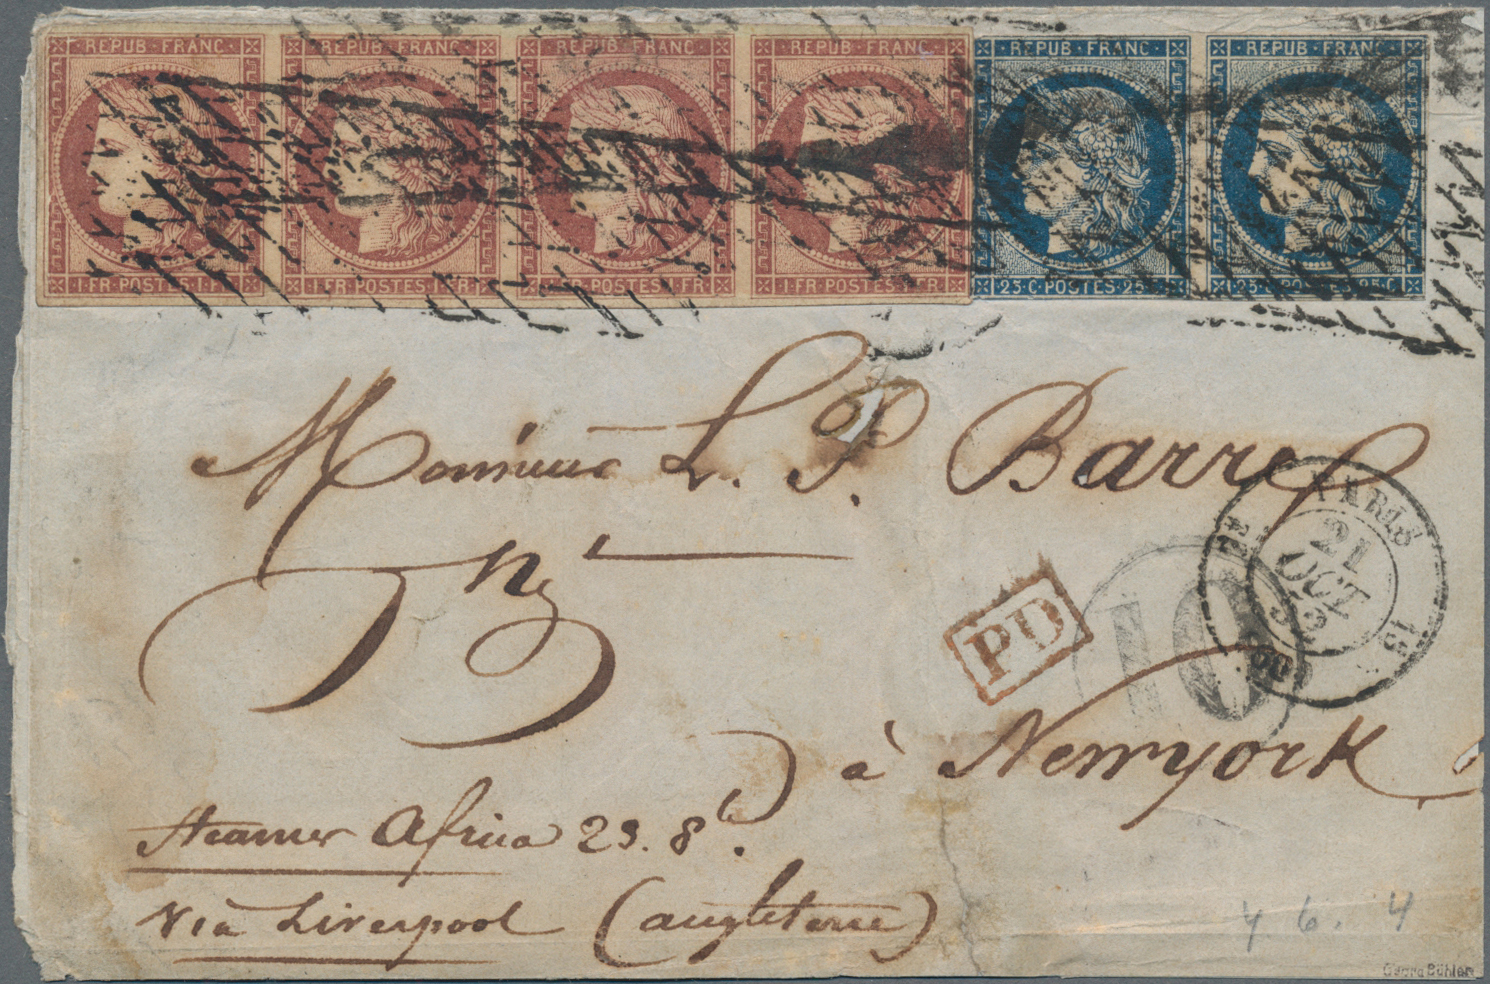 REPUB · FRANC · REPUB · FRANC · REPUB · FRANC · REPUB · FRANC · REPUB · FRANC · REPUB · FRANC
1 · FR · POSTES · 1 · FR · 1 · FR · POSTES · 1 · FR · 1 · FR · POSTES · 1 · FR · 1 · FR · POSTES · 1 · FR · 25 · C · POSTES · 25 · C 25 · C · POSTES · 25 · C
Monsieur L. P. Barre
PARIS
21
OCT
PD
10
60
à Newyork
Steamer Africa 23. 8bre
via Liverpool (angleterre)
4 6. 4
Georg Bühler